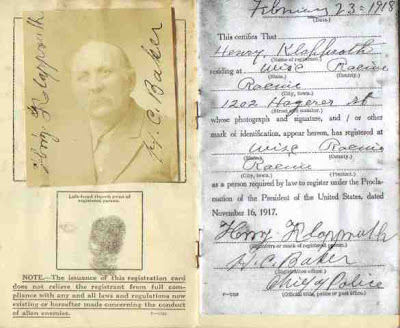 Hnry Klapproth
H. C. Baker
Left-hand thumb print of
registered person.
NOTE.—The issuance of this registration card
does not relieve the registrant from full com-
pliance with any and all laws and regulations now
existing or hereafter made concerning the conduct
of alien enemies.
February 23 = 1918
(Date.)
This certifies That
Henry Klapproth
(Name of registrant.)
residing at Wisc Racine
(State.) (County.)
Racine
(City, town.)
1202 St
(Street and number.)
whose photograph and signature, and / or other
mark of identification, appear hereon, has registered at
Wisc Racine
(State.) (County.)
Racine
(City, town.)
as a person required by law to register under the Procla-
mation of the President of the United States, dated
November 16, 1917.
Hnry Klapproth
(Signature or mark of registered person.)
H. C. Baker
(Registration officer.)
Chief of Police
(Official title, police or post office.)